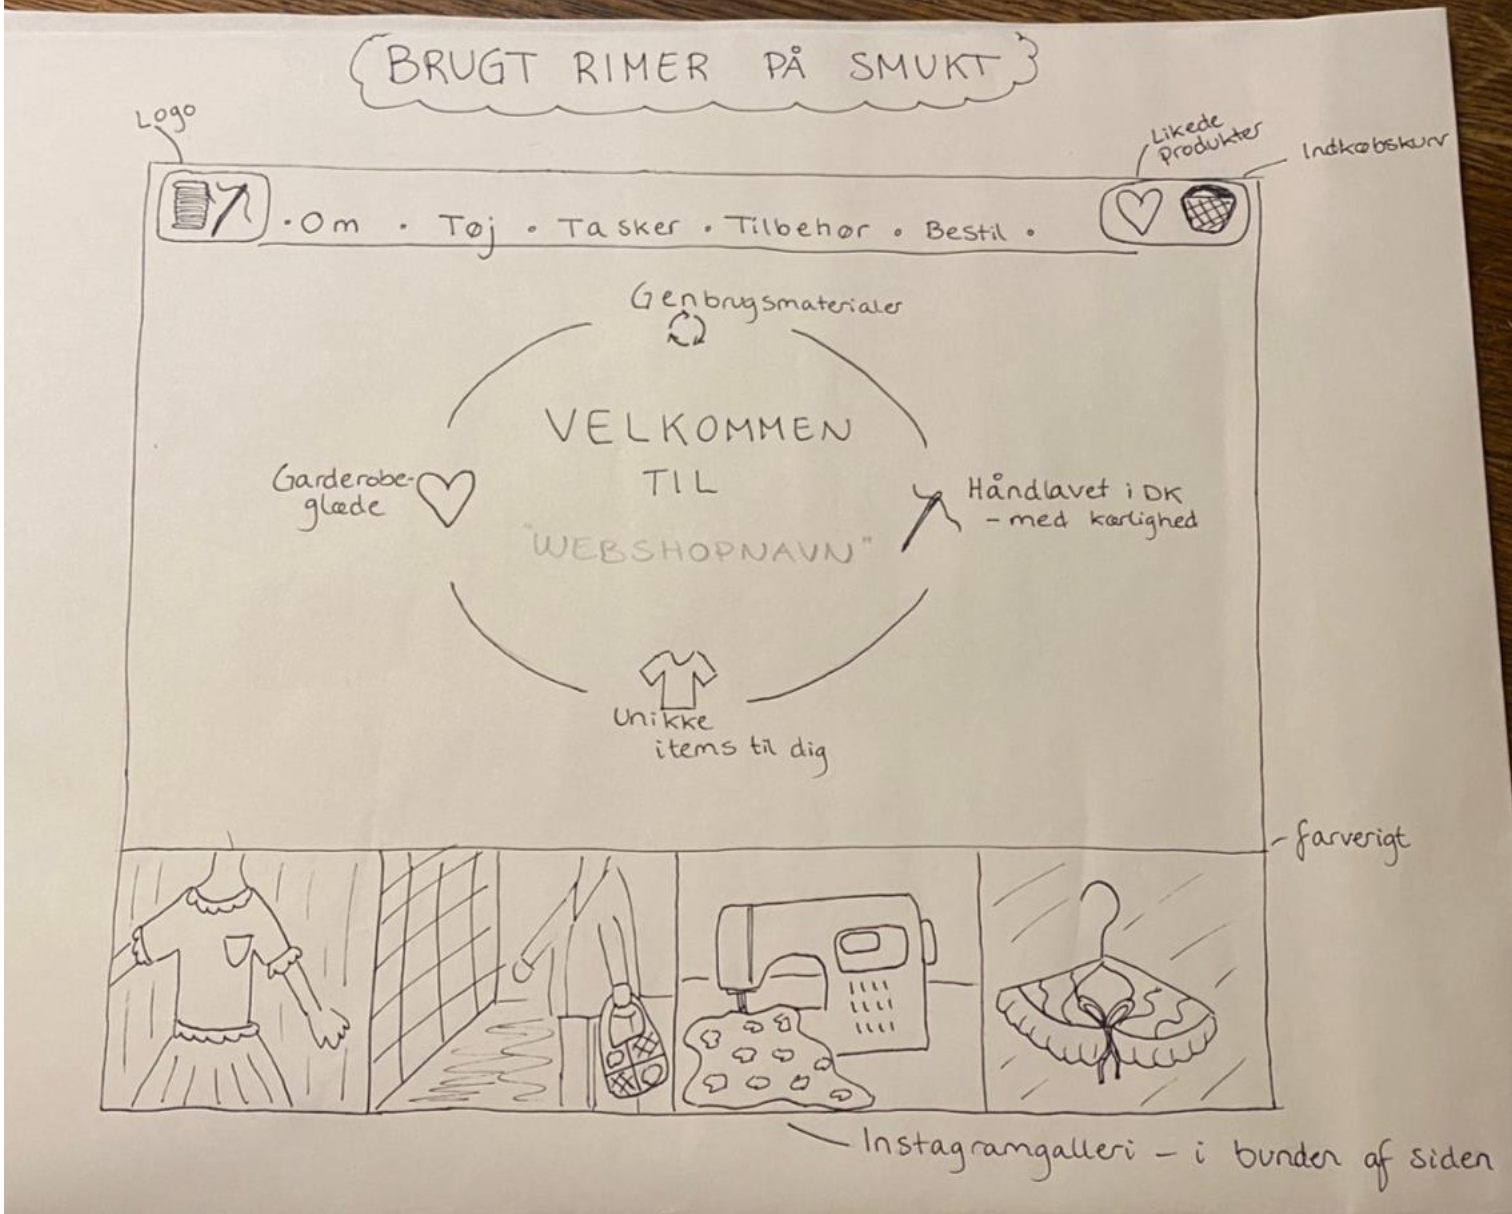 BRUGT RIMER PÅ SMUKT
Logo
Likede
produkter
Indkøbskurv
· Om · Tøj · Tasker · Tilbehør · Bestil ·
Genbrugsmaterialer
VELKOMMEN
TIL
"WEBSHOPNAVN"
Garderobe-
glæde
Håndlavet i DK
- med kærlighed
Unikke
items til dig
farverigt
Instagramgalleri - i bunden af siden